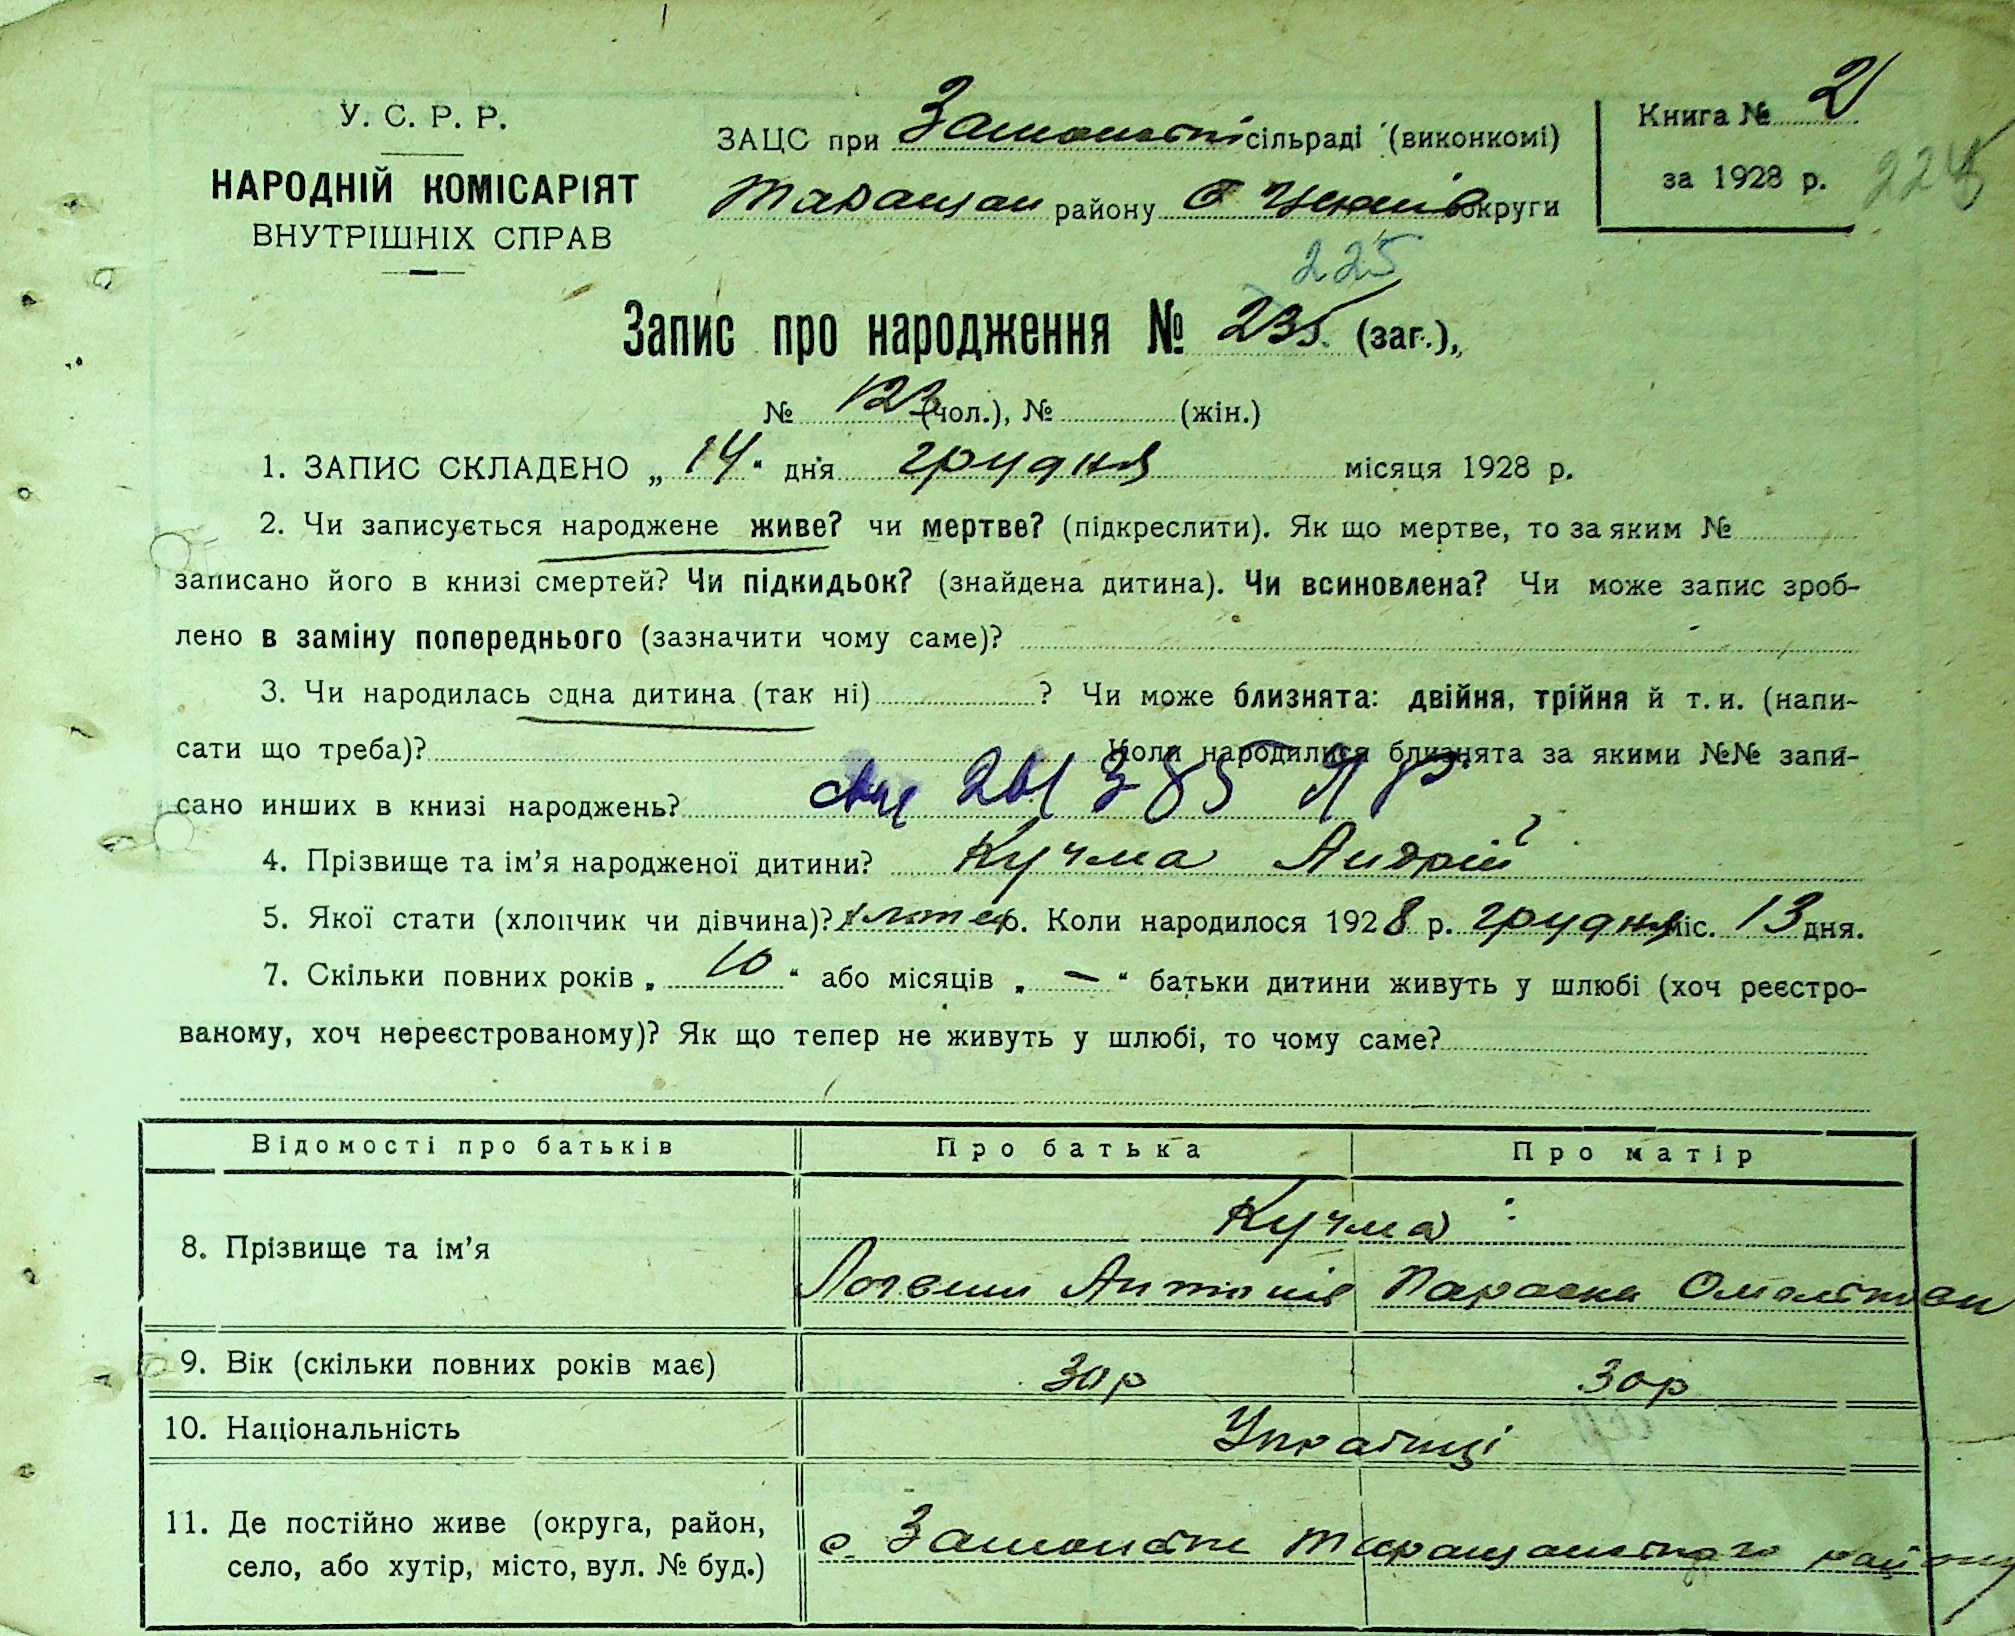 У. С. Р. Р.
НАРОДНІЙ КОМІСАРІЯТ
ВНУТРІШНІХ СПРАВ
ЗАЦС при сільраді (виконкомі)
Таращан району округи
Книга № 2
за 1928 р.
225
225
Запис про народження № 235. (заг.),
№ 123 (чол.), № (жін.)
1. ЗАПИС СКЛАДЕНО „ 14 “ дня грудня місяця 1928 р.
2. Чи записується народжене живе? чи мертве? (підкреслити). Як що мертве, то за яким №
записано його в книзі смертей? Чи підкидьок? (знайдена дитина). Чи всиновлена? Чи може запис зроб-
лено в заміну попереднього (зазначити чому саме)?
3. Чи народилась одна дитина (так ні) ? Чи може близнята: двійня, трійня й т. и. (напи-
сати що треба)? Коли народилися близнята за якими №№ запи-
сано инших в книзі народжень?
4. Прізвище та ім’я народженої дитини? Кучма Андрій
5. Якої стати (хлопчик чи дівчина)? 6. Коли народилося 1928 р. грудня міс. 13 дня.
7. Скільки повних років „ 10 “ або місяців „ — “ батьки дитини живуть у шлюбі (хоч реєстро-
ваному, хоч нереєстрованому)? Як що тепер не живуть у шлюбі, то чому саме?
Відомості про батьків Про батька Про матір
8. Прізвище та ім’я Кучма
Логвин Антонів Параска
9. Вік (скільки повних років має) 30 р 30 р
10. Національність Українці
11. Де постійно живе (округа, район,
село, або хутір, місто, вул. № буд.) с. Таращанського району